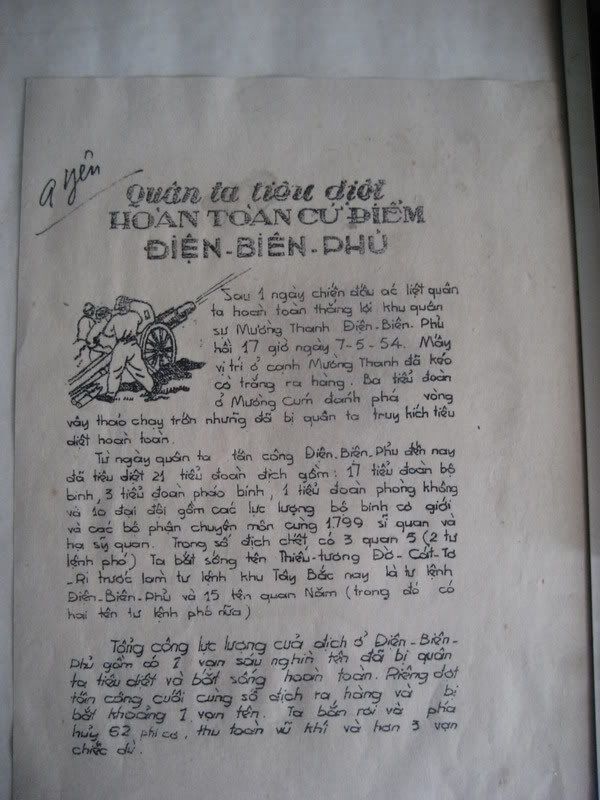 a yên
Quân ta tiêu diệt
HOÀN TOÀN CỨ ĐIỂM
ĐIỆN-BIÊN-PHỦ
Sau 1 ngày chiến đấu ác liệt quân
ta hoàn toàn thắng lợi khu quân
sự Mường Thanh Điện-Biên-Phủ
hồi 17 giờ ngày 7-5-54. Mấy
vị trí ở cạnh Mường Thanh đã kéo
cờ trắng ra hàng. Ba tiểu đoàn
ở Mường Cum đánh phá vòng
vây tháo chạy trốn nhưng đã bị quân ta truy kích tiêu
diệt hoàn toàn.
Từ ngày quân ta tấn công Điện-Biên-Phủ đến nay
đã tiêu diệt 21 tiểu đoàn địch gồm: 17 tiểu đoàn bộ
binh, 3 tiểu đoàn pháo binh, 1 tiểu đoàn phòng không
và 10 đại đội gồm các lực lượng bộ binh cơ giới
và các bộ phận chuyên môn cùng 1799 sĩ quan và
hạ sỹ quan. Trong số địch chết có 3 quan 5 (2 tư
lệnh phó) Ta bắt sống tên Thiếu-tướng Đờ-Cát-Tơ
-Ri trước làm tư lệnh khu Tây Bắc nay là tư lệnh
Điện-Biên-Phủ và 15 tên quan Năm (trong đó có
hai tên tư lệnh phó nữa)
Tổng công lực lượng của địch ở Điện-Biên-
Phủ gồm có 1 vạn sáu nghìn tên đã bị quân
ta tiêu diệt và bắt sống hoàn toàn. Riêng đợt
tấn công cuối cùng số địch ra hàng và bị
bắt khoảng 1 vạn tên. Ta bắn rơi và phá
hủy 62 phi cơ, thu toàn vũ khí và hơn 3 vạn
chiếc dù.